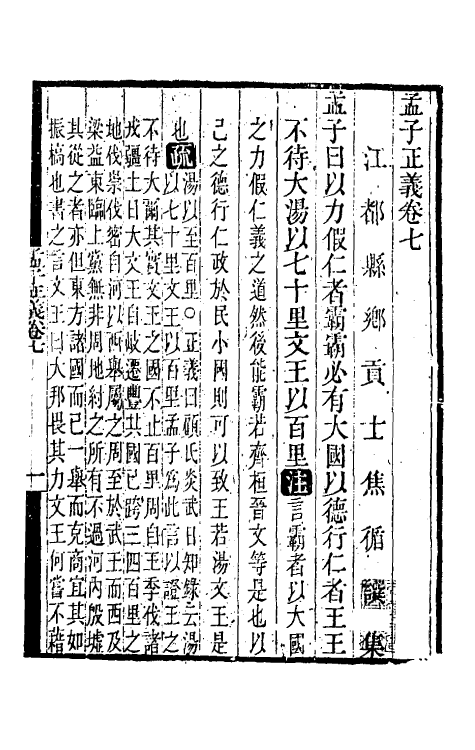 孟子正義卷七
江都縣鄉貢士焦循譔集
孟子曰以力假仁者霸霸必有大國以德行仁者王王
不待大湯以七十里文王以百里注言霸者以大國
之力假仁義之道然後能霸若齊桓晉文等是也以
己之德行仁政於民小國則可以致王若湯文王是
也疏湯以至百里○正義曰顧氏炎武日知錄云湯
以七十里文王以百里孟子為此言以證王之
不待大爾其實文王之國不止百里周自王季伐諸
戎疆土日大文王自岐遷豐其國已跨三四百里之
地伐崇伐密自河以西舉屬之周至於武王而西及
梁益東臨上黨無非周地紂之所有不過河內殷墟
其從之者亦但東方諸國而已一舉而克商宜其如
振槁也書之言文王曰大邦畏其力文王何嘗不藉
孟子正義卷七
一